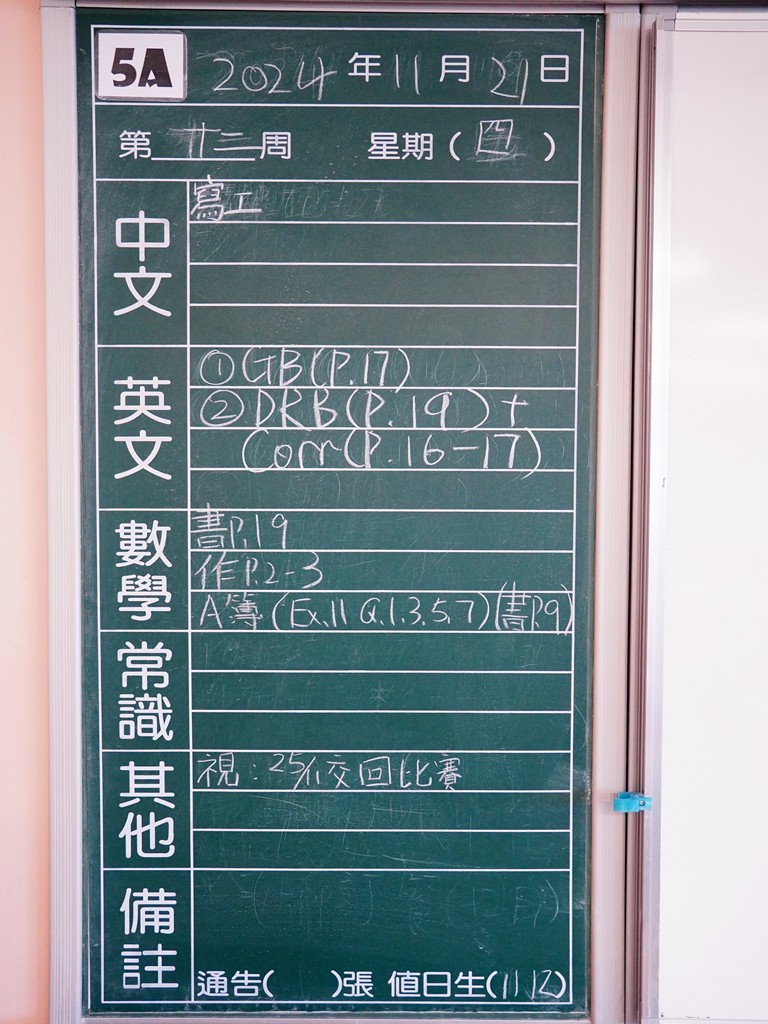 5A 2024年11月21日
第廿三周 星期(四)
中文
寫工
英文
①GB(P.17)
②DRB(P.19)+
Corr(P.16-17)
數學
書P.19
作P.2-3
A簿(Ex.11 Q.1.3.5.7)(書P.9)
常識
其他
視:25/11交回比賽
備註
通告( )張 值日生(11,12)